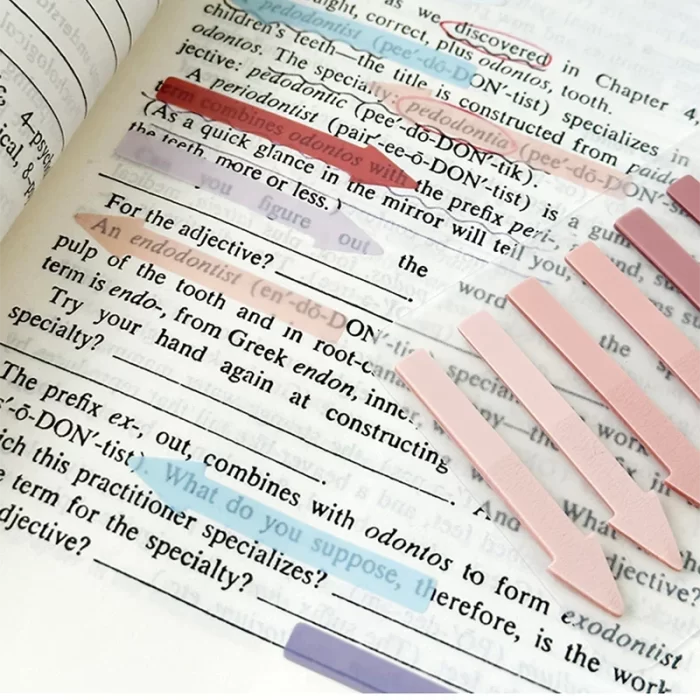 as we discovered in Chapter 4,
ight, correct, plus odontos, tooth.
pedodontist (pee′-dō-DON′-tist) specializes in
children's teeth—the title is constructed from paid
odontos. The specialty: pedodontia (pee′-dō-DON′-
jective: pedodontic (pee′-dō-DON′-tik).
A periodontist (pair′-ee-ō-DON′-tist) is a gum
term combines odontos with the prefix peri-,
(As a quick glance in the mirror will tell you,
the teeth, more or less.)
Can you figure out the word the
For the adjective? .
An endodontist (en′-dō-DON′-tis special
pulp of the tooth and in root-cana work
term is endo-, from Greek endon, inne
Try your hand again at constructing
specialty? . And What
The prefix ex-, out, combines with odontos to form exodontist
-ō-DON′-tist). What do you suppose, therefore, is the work
ich this practitioner specializes?
term for the specialty?
djective?